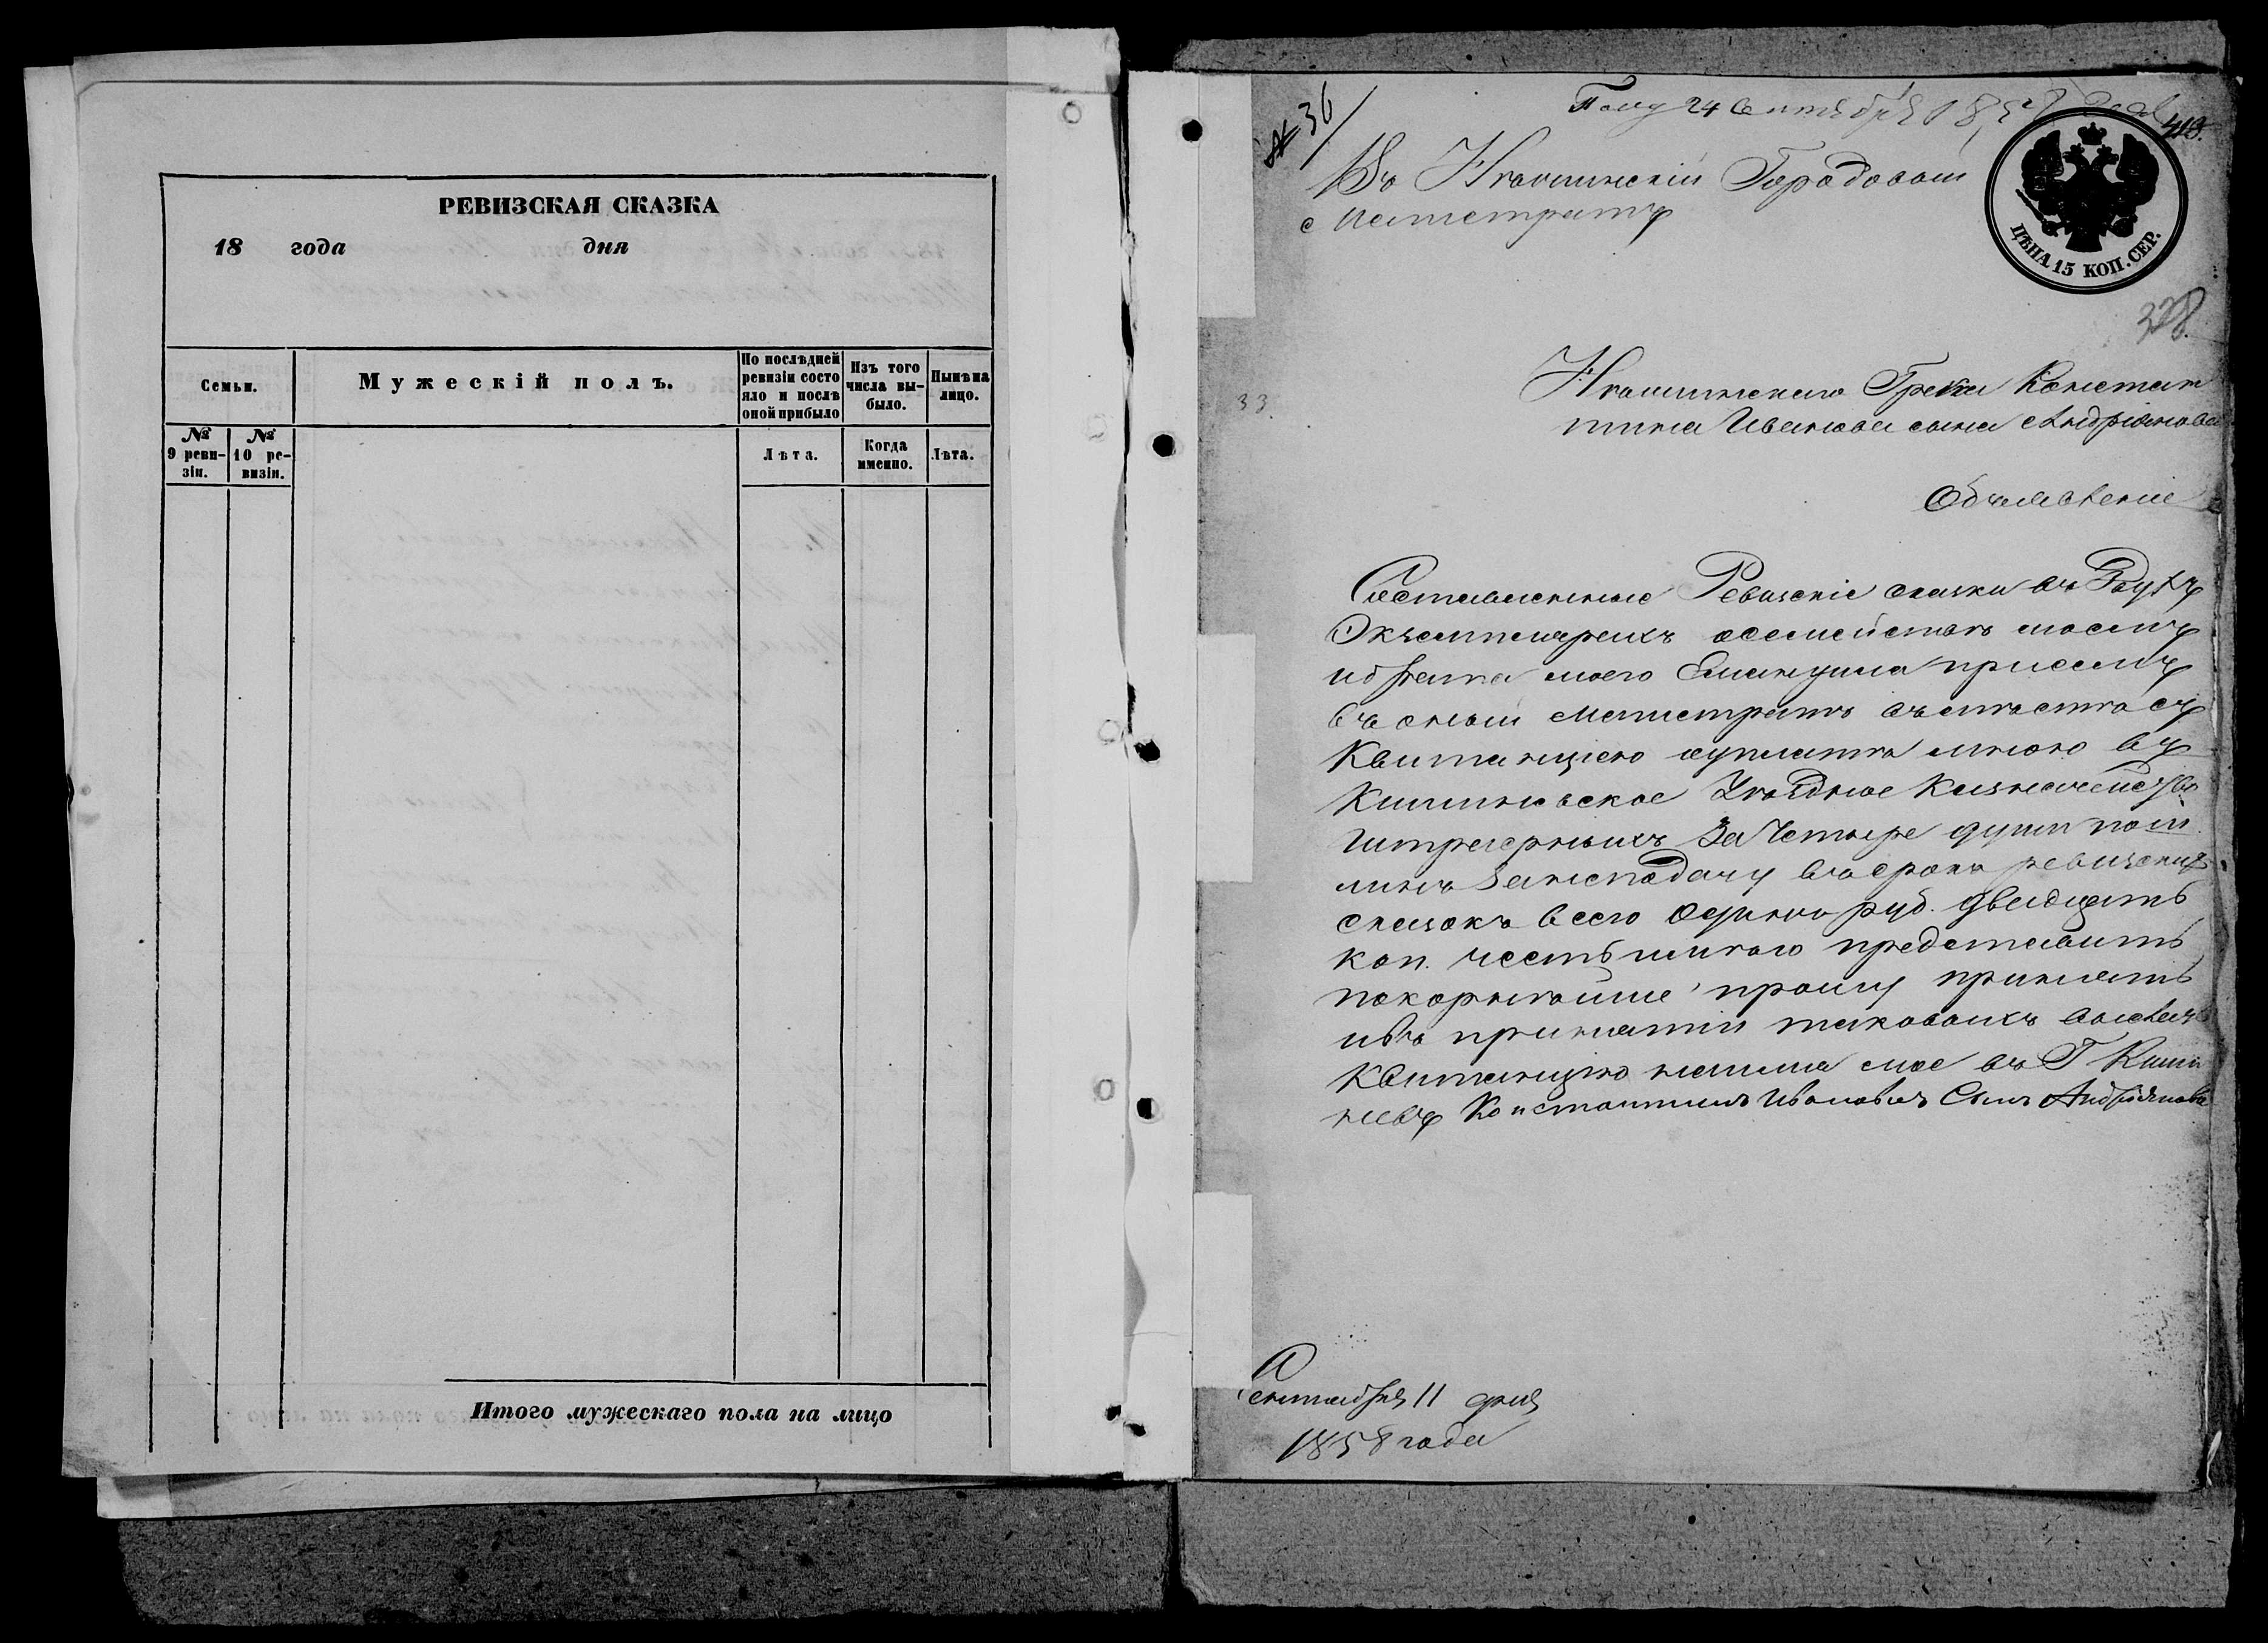 РЕВИЗСКАЯ СКАЗКА
18 года дня
Семьи.
Мужескій полъ.
По послѣдней ревизіи состо
яло и послѣ
оной прибыло
Изъ того
числа вы-
было.
Нынѣ на
лицо.
№
9 реви-
зіи.
№
10 ре-
визіи.
Лѣта.
Когда
именно.
Лѣта.
Итого мужескаго пола на лицо
№ 36
24 Сентября 1858
413.
Въ Нѣжинскій Городовой
Магистратъ
ЦѢНА 15 КОП. СЕР.
328.
33.
Нѣжинскаго Грека Констан
тина Иванова сына Андріанова
Объявленіе
Составленные Ревизскіе сказки въ Двухъ
Экземплярахъ осемействѣ моемъ
и брата моего Емануила при семъ
въ оный Магистратъ съ
Квитанціею мною въ
Кишиневское Уѣздное Казначейство
Штрафныхъ За Четыре души
За неподачу въ срокъ ревизскихъ
сказокъ всего Одинъ руб. двадцать
коп. честь имѣю представить
покорнѣйше прошу принять
и въ принятіи таковыхъ
Квитанцію мое въ Г Киши
невъ Константинъ Ивановъ Сынъ Андріановъ
Сентября 11 дня
1858 года